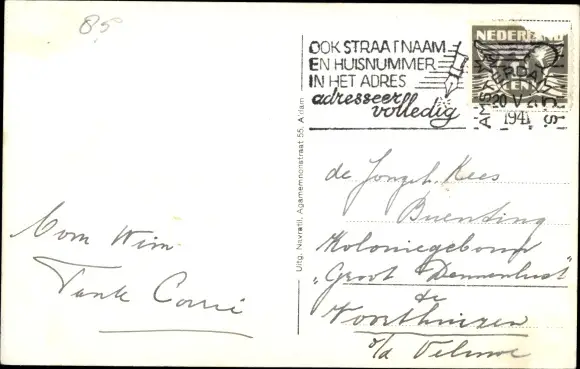 85
OOK STRAATNAAM
EN HUISNUMMER
IN HET ADRES
adresseer
volledig
NEDERLAND
CENT
AMSTERDAM
20 V
1941
Uitg. Navratil, Agamemnonstraat 55, A'dam
de Jongeh. Kees
Buenting
Koloniegebouw
„Groot Dennenlust"
te
Voorthuizen
o/d Veluwe
Oom Wim
Tante Corrie